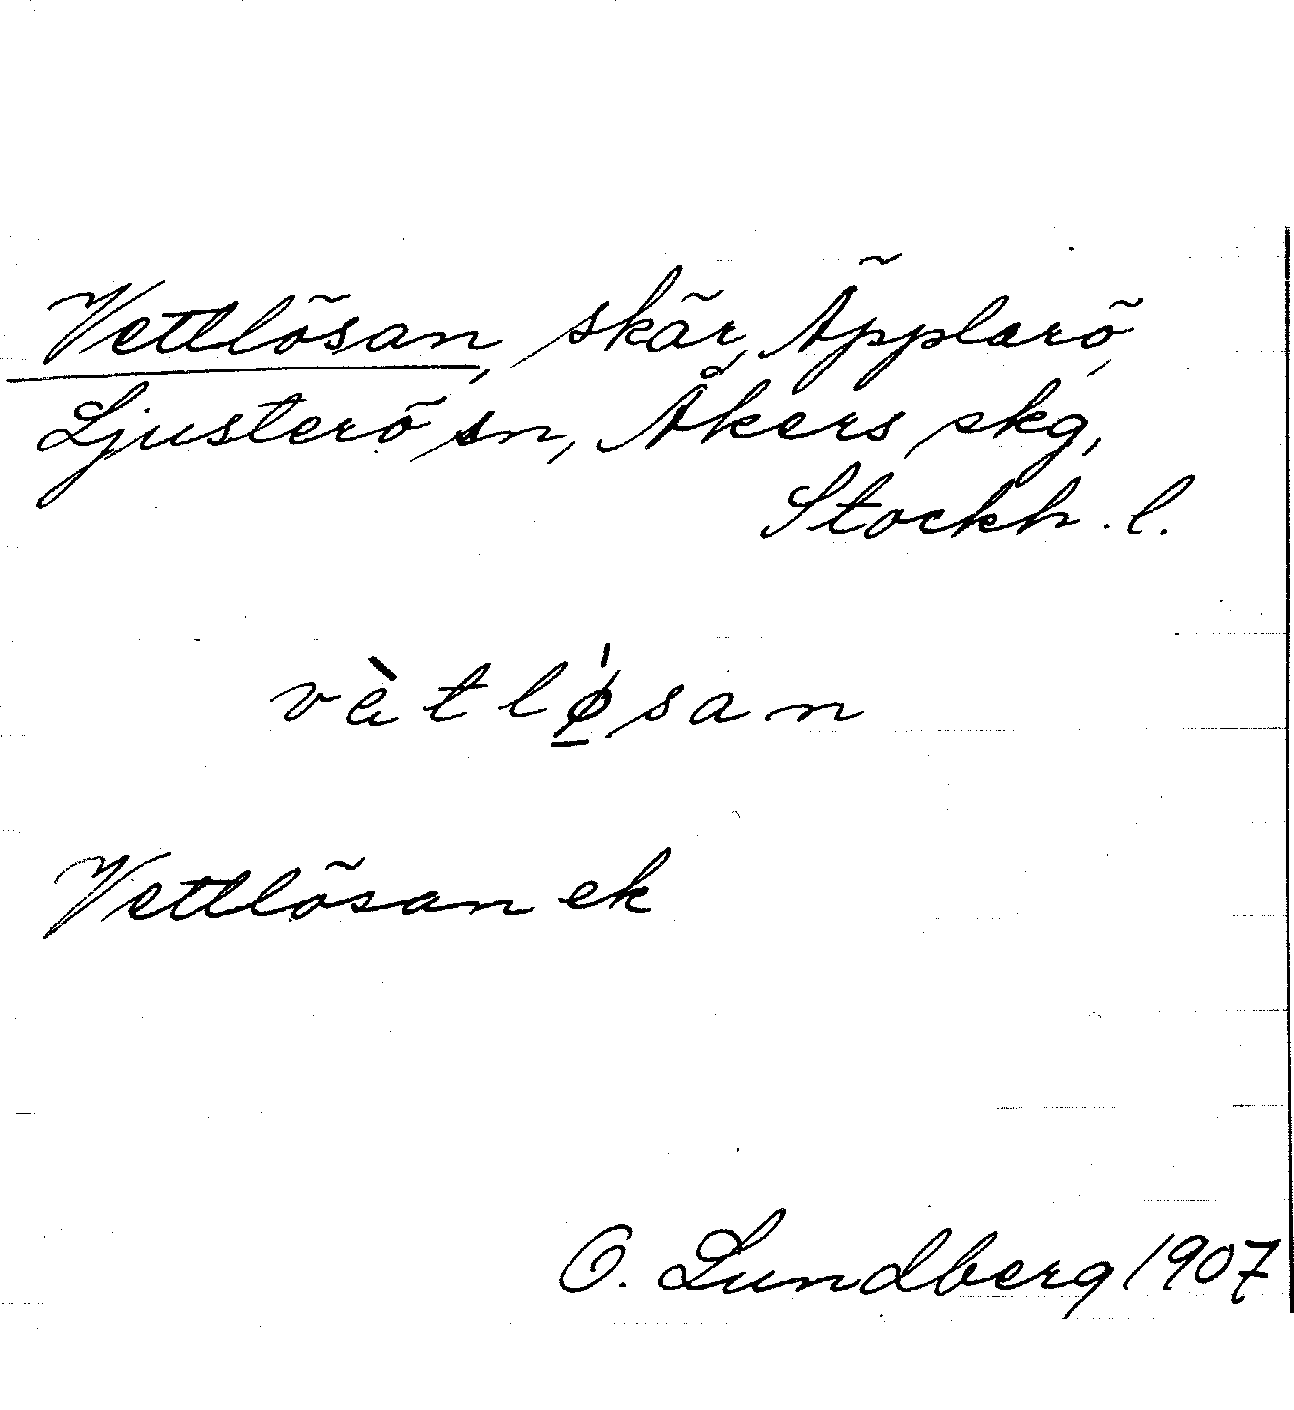 Vettlösan, skär, Äpplarö,
Ljusterö sn, Åkers skg,
Stockh. l.
vètlǿ̱san
Vettlösan ek
O. Lundberg 1907